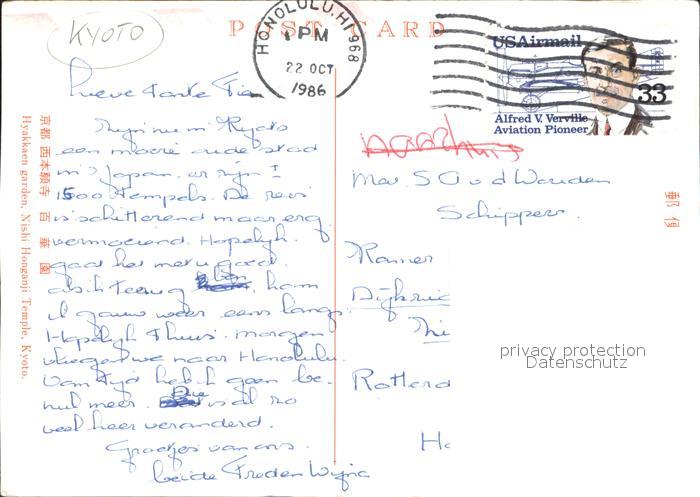 KYOTO
POST CARD
HONOLULU, HI 968
1 PM
22 OCT
1986
USAirmail
33
Alfred V. Verville
Aviation Pioneer
Lieve Tante Fie
Zijn nu in Kyoto
een mooie oude stad
in Japan er zijn ±
1500 tempels. De reis
is schitterend maar erg
vermoeiend. Hopelijk
gaat het met u goed.
als ik terug ben, kom
ik gauw weer eens langs.
Hopelijk Thuis. morgen
vliegen we naar Honolulu.
Van Tijd heb ik geen be-
nul meer. Die is al zo
veel keer veranderd.
Groetjes van ons
beide
Mevr. S
Schippers.
Kamer
Rotterd
京都 西本願寺 百華園
Hyakkaen garden, Nishi Honganji Temple, Kyoto.
郵便
privacy protection
Datenschutz